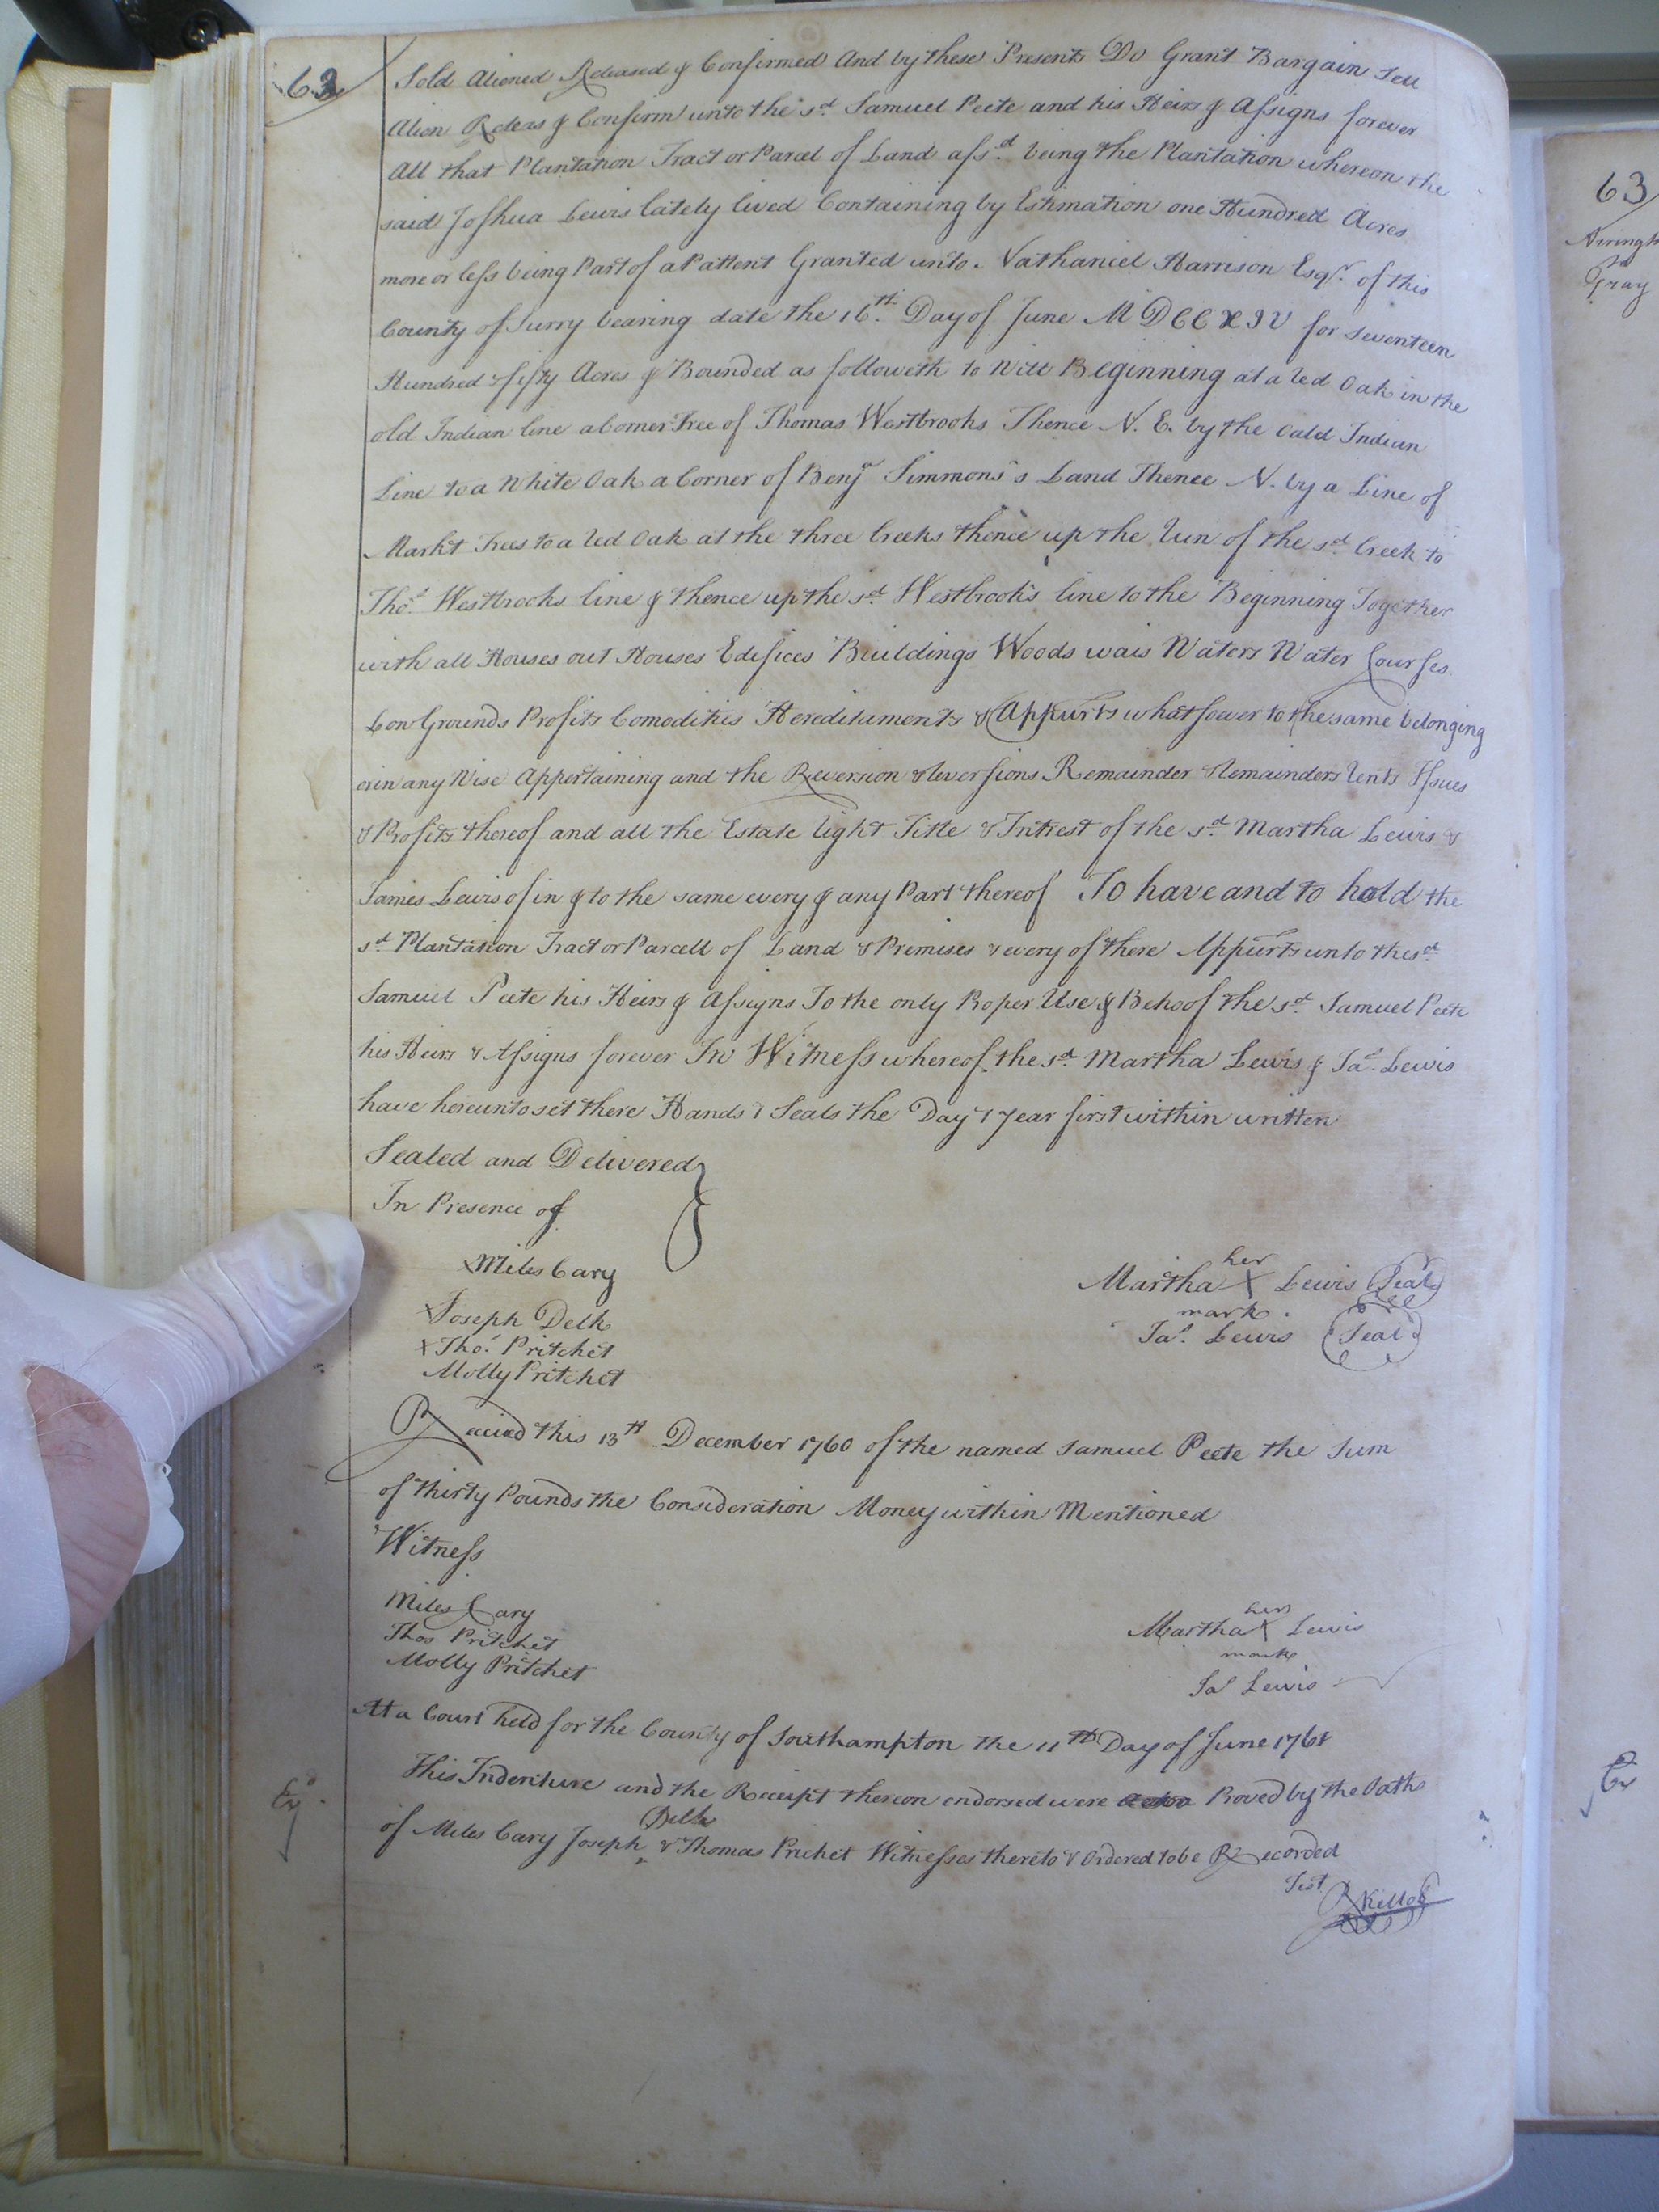 62
Sold Aliened Released & Confirmed And by these Presents Do Grant Bargain Sell
Alien Releas & Confirm unto the sd. Samuel Peete and his Heirs & Assigns forever
All that Plantation Tract or Parcel of Land afsd. being the Plantation whereon the
said Joshua Lewis lately lived Containing by Estimation one Hundred Acres
more or less being Part of a Pattent Granted unto Nathaniel Harrison Esqr. of this
County of Surry bearing date the 16th. Day of June MDCCXIV for seventeen
Hundred & fifty Acres & Bounded as followeth to Witt Beginning at a Red Oak in the
old Indian line a Corner Tree of Thomas Westbrooks Thence N. E. by the oald Indian
Line to a White Oak a Corner of Benja Simmons's Land Thence N. by a Line of
Markt Trees to a Red Oak at the three Creeks thence up the Run of the sd. Creek to
Thos. Westbrooks line & thence up the sd. Westbrook's line to the Beginning Together
with all Houses out Houses Edifices Buildings Woods wais Waters Water Courses
Low Grounds Profits Comodities Hereditaments & Appurts whatsoever to the same belonging
or in any Wise Appertaining and the Reversion & Reversions Remainder & Remainders Rents Issues
& Profits thereof and all the Estate Right Title & Intrest of the sd. Martha Lewis &
James Lewis of in & to the same every & any Part thereof To have and to hold the
sd. Plantation Tract or Parcell of Land & Premises & every of there Appurts unto the sd.
Samuel Peete his Heirs & Assigns To the only Proper Use & Behoof the sd. Samuel Peete
his Heirs & Assigns forever In Witness whereof the sd. Martha Lewis & Jas. Lewis
have hereunto set there Hands & Seals the Day & Year first within written
Sealed and Delivered
In Presence of
x Miles Cary
x Joseph Delk
x Thos. Pritchet
Molly Pritchet
her
Martha X Lewis Seal
mark
Jas. Lewis Seal
Received this 13th December 1760 of the named Samuel Peete the Sum
of thirty Pounds the Consideration Money within Mentioned
Witness
Miles Cary
Thos Pritchet
Molly Pritchet
her
Martha X Lewis
mark
Jas Lewis
At a Court held for the County of Southampton the 11th Day of June 1761
This Indenture and the Receipt thereon endorsed were Proved by the Oaths
Delk
of Miles Cary Joseph & Thomas Prichet Witnesses thereto & Ordered to be Recorded
Test
R Kello
63
Gray